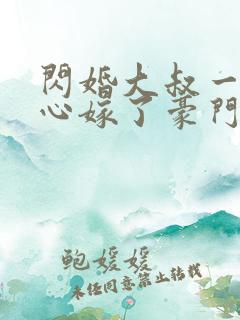 閃婚大叔一
心嫁了豪門
鲍媛媛
未经同意禁止转载